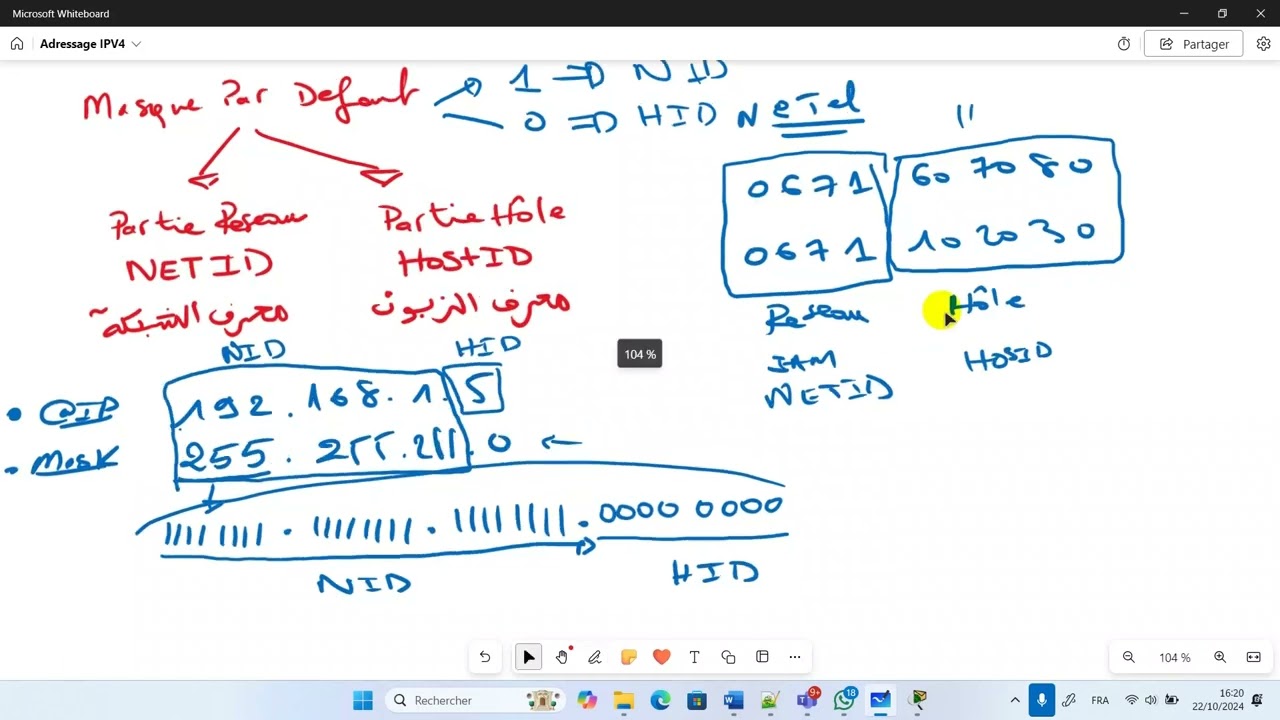 Microsoft Whiteboard
Adressage IPV4
Partager
1 => NID
Masque Par Defaut
0 => HID
N eTel
0671 60 70 80
0671 10 20 30
Partie Reseau
Partie Hôle
NETID
HOStID
معرف الشبكة
معرف الزبون
Reseau
Hôle
IAM
HOSID
NETID
NID
HID
104 %
@IP
192.168.1.5
Mask
255.255.255.0
11111111.11111111.11111111.0000 0000
NID
HID
104 %
Rechercher
9+
18
FRA
16:20
22/10/2024